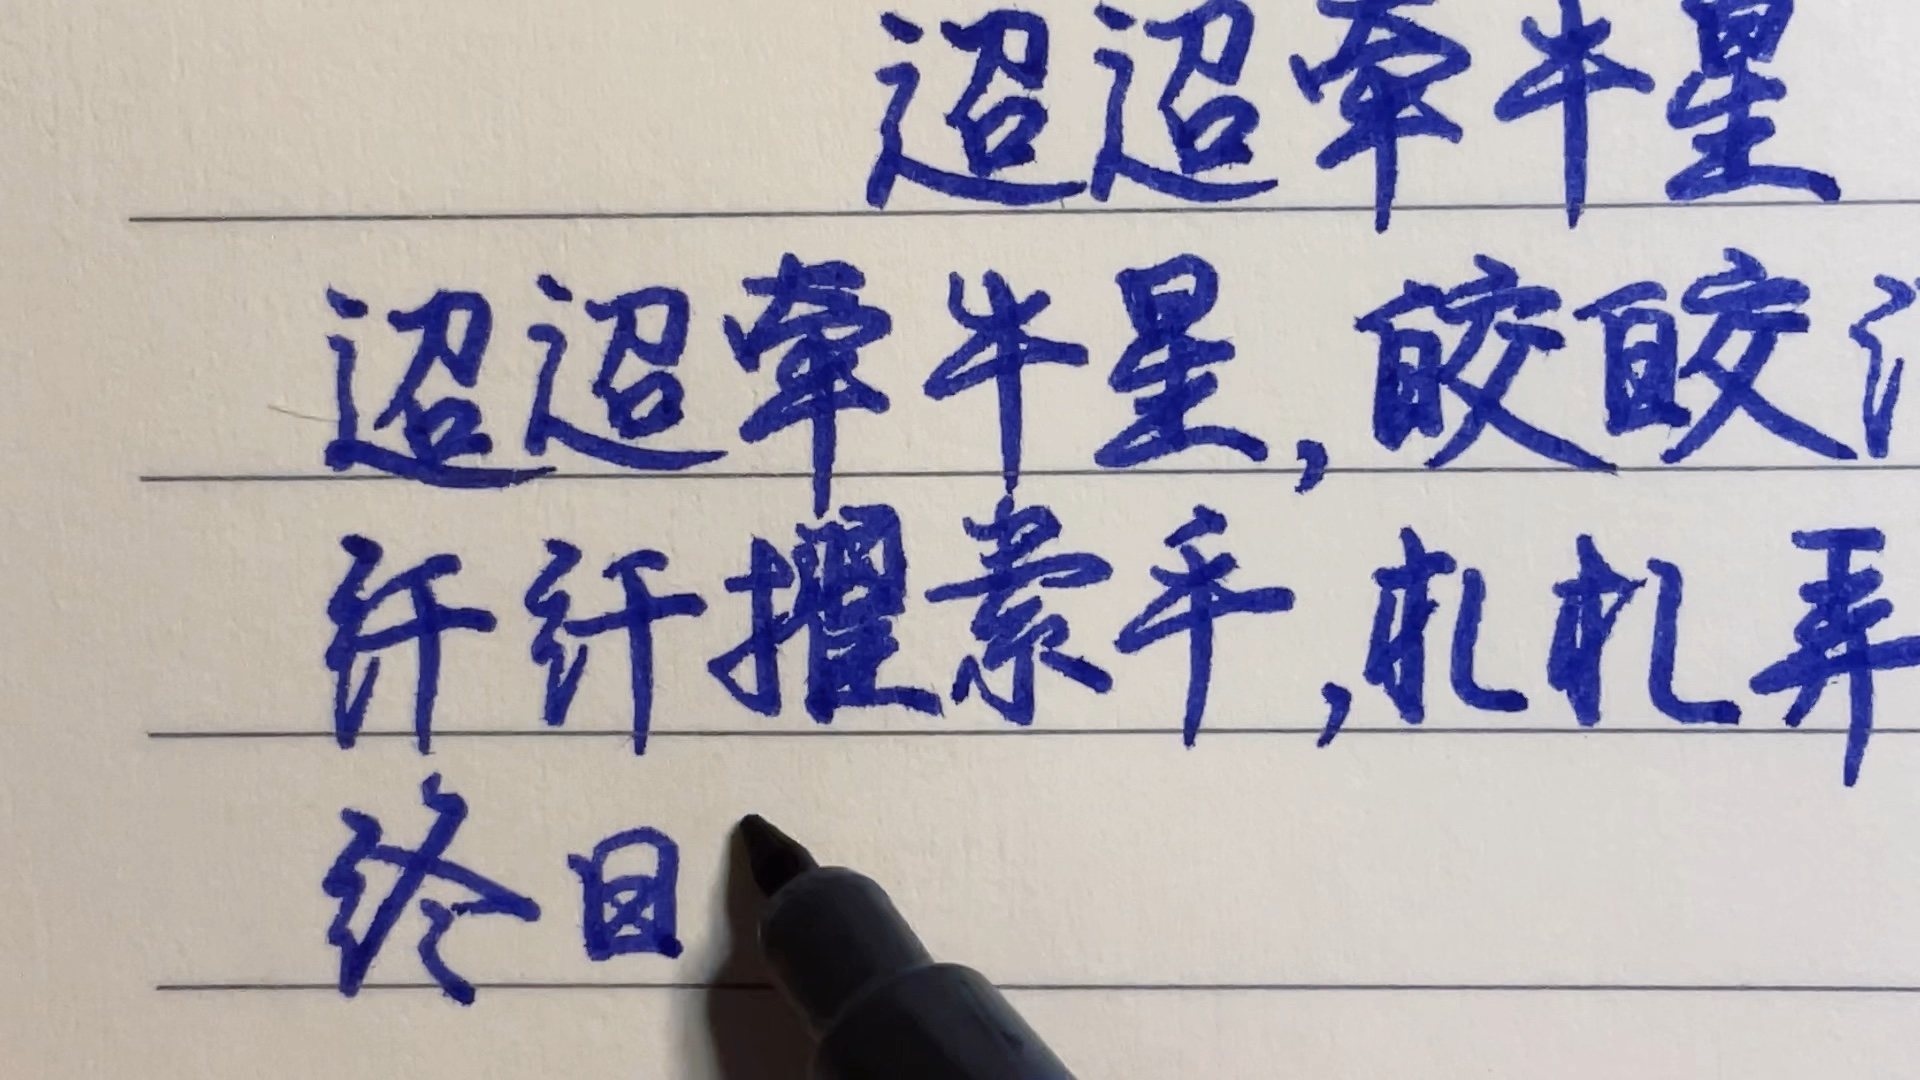 迢迢牵牛星
迢迢牵牛星,皎皎
纤纤擢素手,札札弄
终日